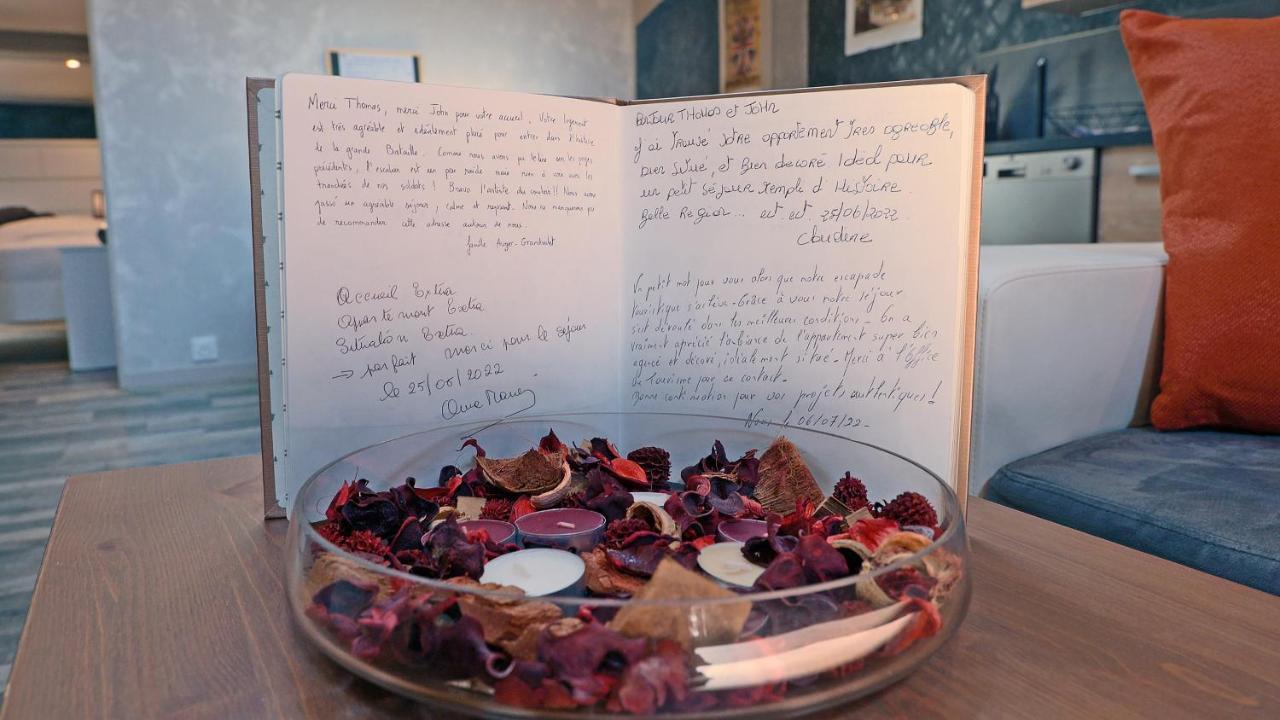 Merci Thomas, merci John pour votre accueil. Votre logement
est très agréable et idéalement placé pour entrer dans l'histoire
de la grande Bataille. Comme nous avons pu le lire sur les pages
précédentes, l'escalier est un peu raide mais rien à voir avec les
tranchées de nos soldats ! Bravo l'artiste du couloir!! Nous avons
passé un agréable séjour, calme et reposant. Nous ne manquerons pas
de recommander cette adresse autour de nous.
famille Auger-
Accueil Extra
Appartement Extra
Situation Extra
→ parfait merci pour le séjour
le 25/06/2022
BONJOUR THOMAS ET JOHN
j'ai trouvé votre appartement très agréable,
bien situé, et bien décoré. Idéal pour
un petit séjour rempli d'Histoire.
Belle Région... est est. 25/06/2022
Claudine
Un petit mot pour vous alors que notre escapade
touristique s'achève. Grâce à vous notre séjour
s'est déroulé dans les meilleures conditions. On a
vraiment apprécié l'ambiance de l'appartement super bien
agencé et décoré, idéalement situé. Merci à l'Office
de Tourisme pour ce contact.
Bonne continuation pour vos projets authentiques!
le 06/07/22.